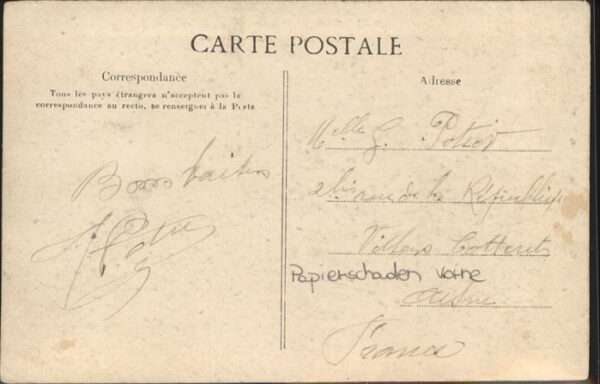 CARTE POSTALE
Correspondance
Tous les pays étrangers n'acceptent pas la
correspondance au recto, se renseigner à la Poste
Adresse
Bons baisers
Melle G. Potier
2 bis rue de la République
Villers Cotterets
Papierschaden vorne
Aisne
France